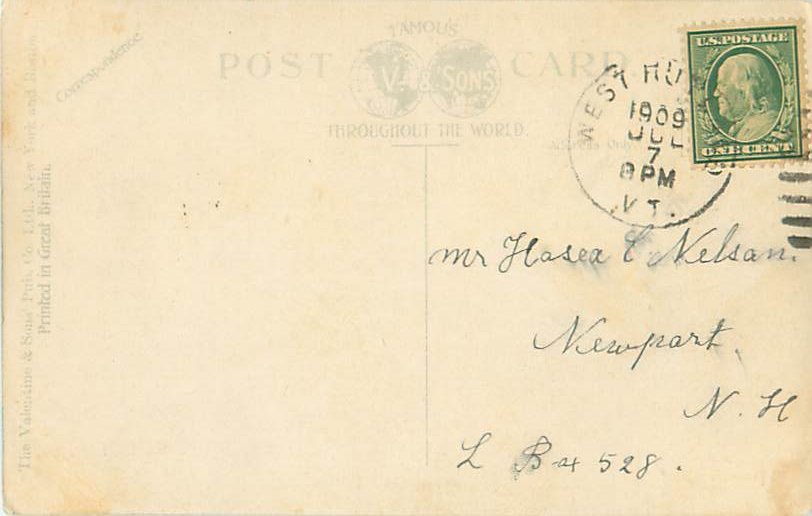 FAMOUS
POST V. & SONS CARD
THROUGHOUT THE WORLD.
Correspondence
Address Only
The Valentine & Sons' Pub. Co. Ltd., New York and Boston
Printed in Great Britain.
U.S. POSTAGE
ONE CENT
WEST RU
1909
JUL
7
8 PM
VT.
Mr Hosea C Nelson.
Newport,
N. H
L Box 528.